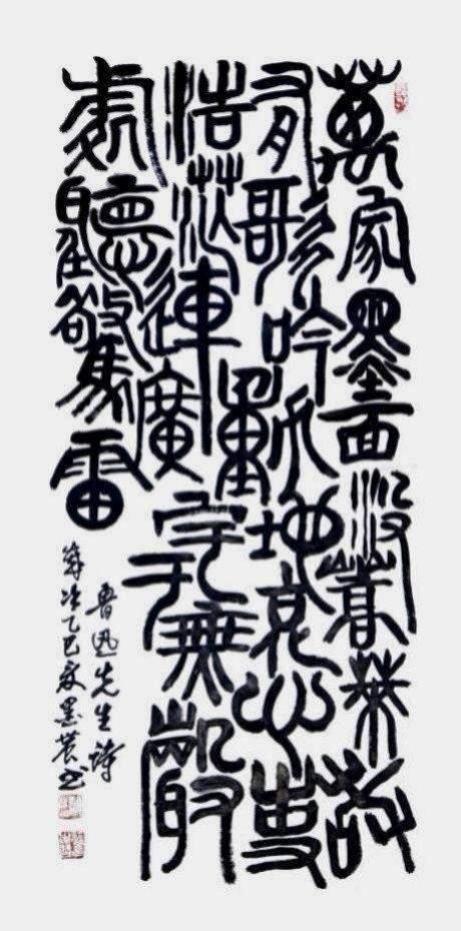 萬家墨面沒蒿萊敢
有歌吟動地哀心事
浩茫連廣宇于無聲
處聽驚雷
魯迅先生詩
歲次乙巳墨農书